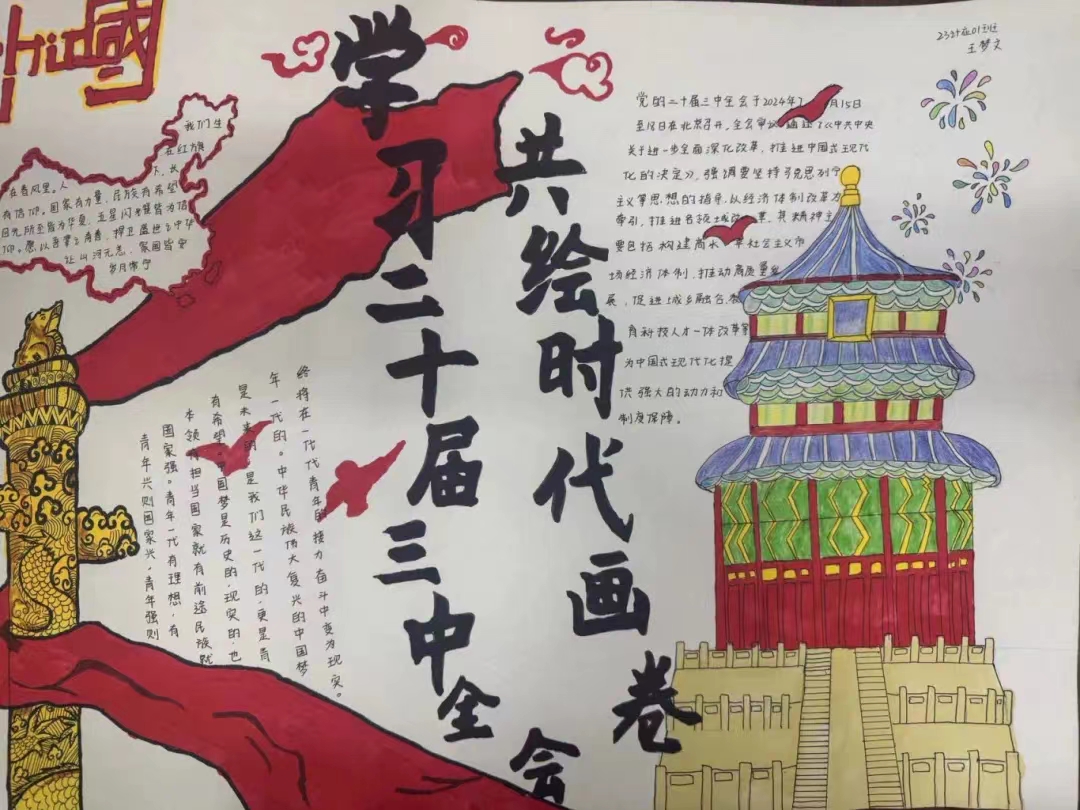 我们生
在红旗
下，长
在春风里。人
有信仰。国家有力量，民族有希望
目光所至皆为华夏，五星闪耀皆为信
仰。愿以吾辈之青春，捍卫盛世之中华
让山河无恙，家国皆安
岁月常宁
学习二十届三中全会
共绘时代画卷
01班
王梦文
党的二十届三中全会于2024年7月15日
至18日在北京召开，全会审议通过了《中共中央
关于进一步全面深化改革，推进中国式现代
化的决定》，强调要坚持马克思列宁
主义等思想的指导，以经济体制改革为
牵引，推进各领域改革，其精神主
要包括构建高水平社会主义市
场经济体制，推动高质量发
展，促进城乡融合，教
育科技人才一体改革等
为中国式现代化提
供强大的动力和
制度保障。
青年兴则国家兴，青年强则
国家强。青年一代有理想，有
本领有担当国家就有前途民族就
有希望。中国梦是历史的，现实的，也
是未来的，是我们这一代的，更是青
年一代的。中华民族伟大复兴的中国梦
终将在一代代青年的接力奋斗中变为现实。